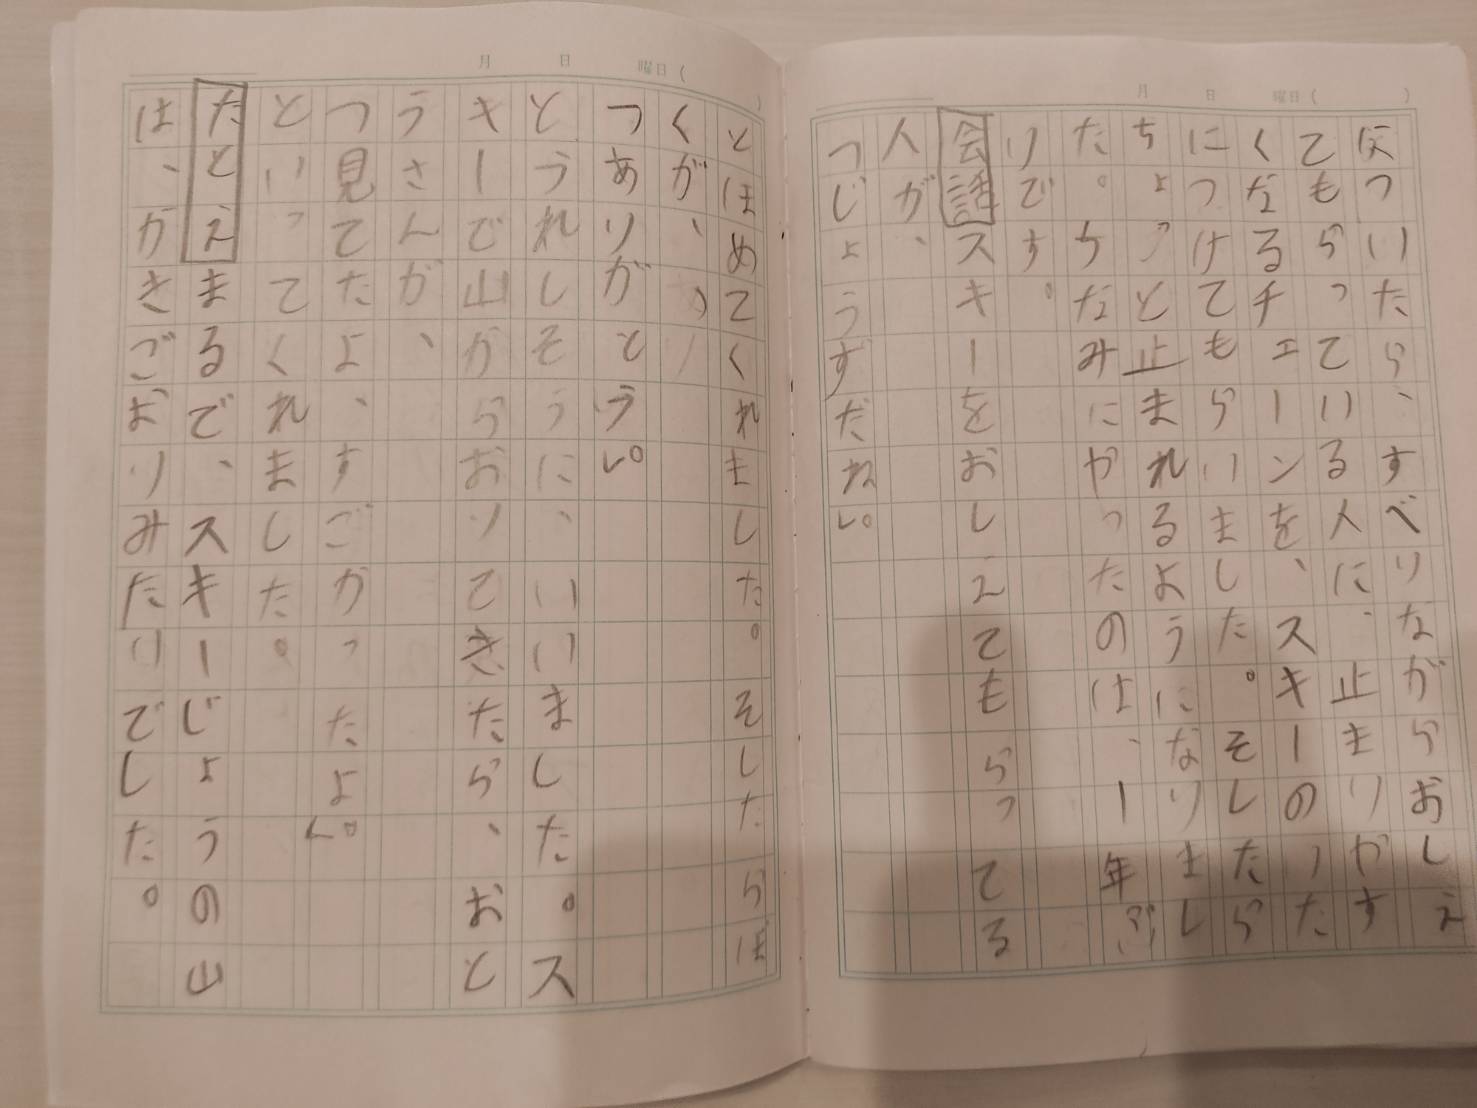 月 日 曜日( )
ついたら、すべりながらおしえ
てもらっている人に、止まりやす
くなるチェーンを、スキーのいた
につけてもらいました。そしたら
ちょっと止まれるようになりまし
た。ちなみにやったのは、一年ぶ
りです。
会話スキーをおしえてもらってる
人が、
「じょうずだね。」
月 日 曜日( )
とほめてくれました。そしたらぼ
くが、
「ありがとう。」
とうれしそうに、いいました。ス
キーで山からおりてきたら、おと
うさんが、
「見てたよ、すごかったよ。」
といってくれました。
たとえまるで、スキーじょうの山
は、かきごおりみたいでした。